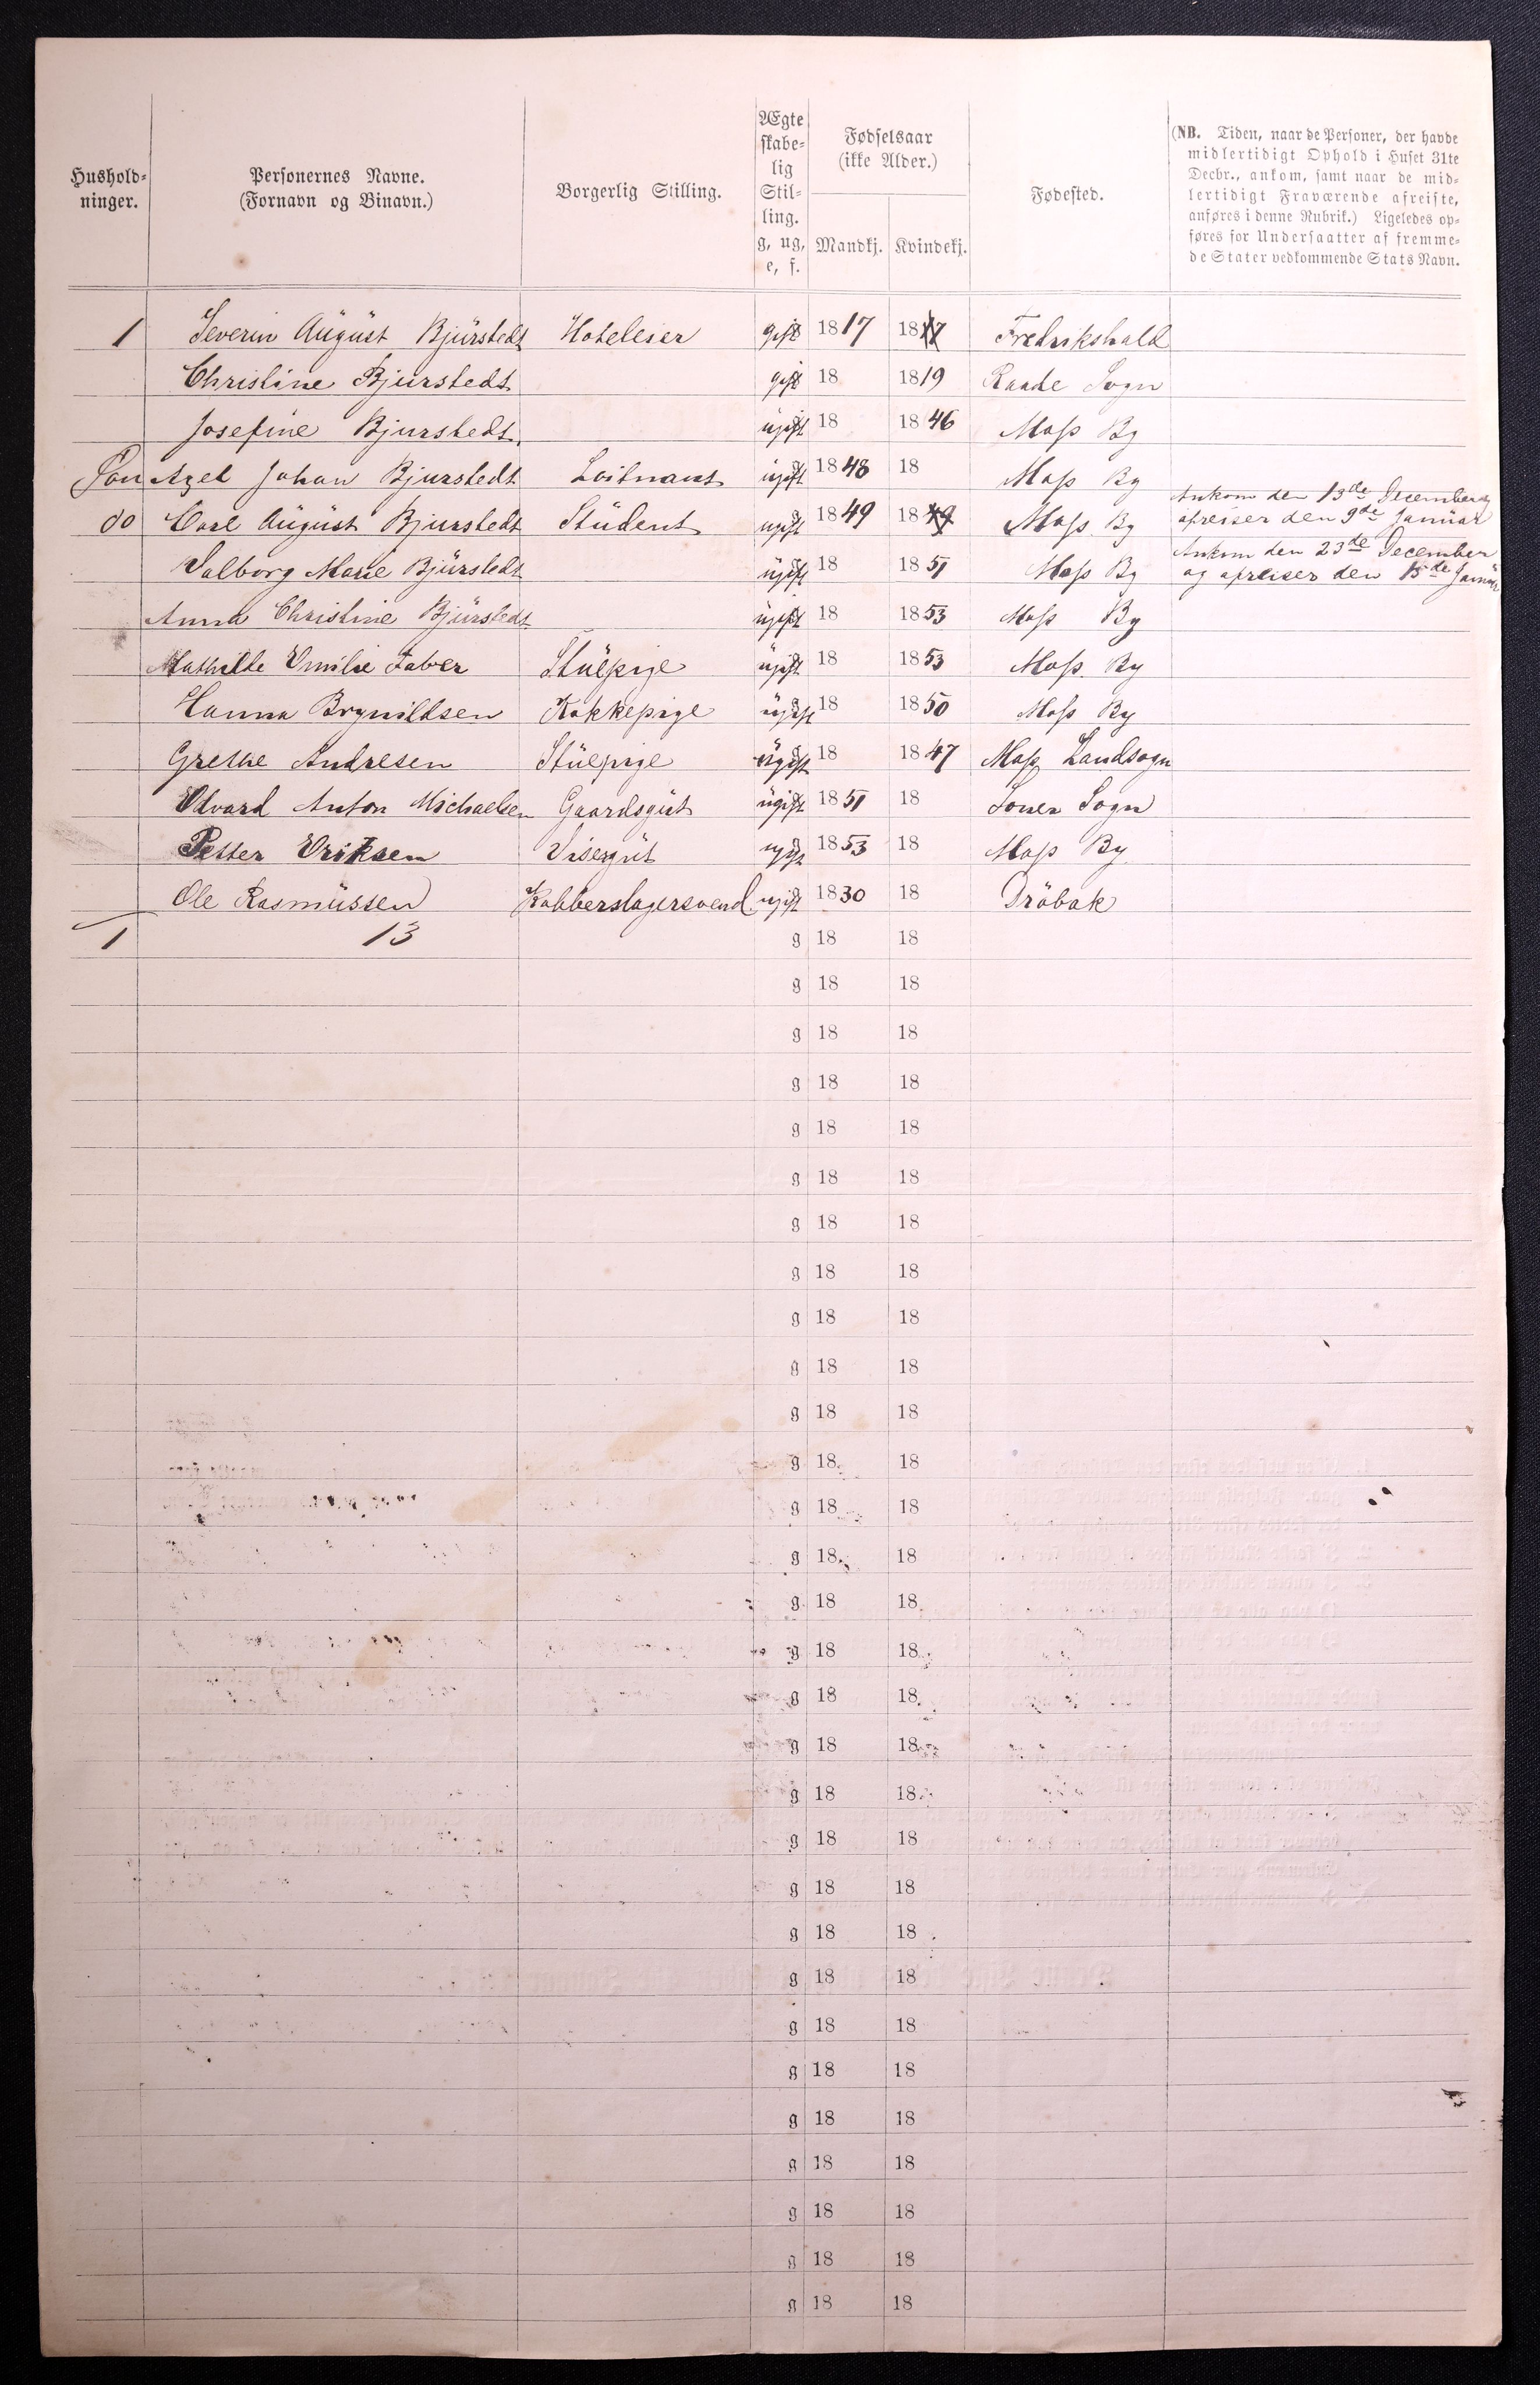 Hushold-
ninger.
Personernes Navne.
(Fornavn og Binavn.)
Borgerlig Stilling.
Ægte
skabe-
lig
Stil-
ling.
g, ug,
e, f.
Fødselsaar
(ikke Alder.)
Mandkj. Kvindekj.
Fødested.
(NB. Tiden, naar de Personer, der havde
midlertidigt Ophold i Huset 31te
Decbr., ankom, samt naar de mid-
lertidigt Fraværende afreiste,
anføres i denne Rubrik.) Ligeledes op-
føres for Undersaatter af fremme-
de Stater vedkommende Stats Navn.
1 Severin August Bjurstedt Hotelleier gift 1817 1817 Fredrikshald
Christine Bjurstedt gift 18 1819 Raade Sogn
Josefine Bjurstedt. ugift 18 1846 Moss By
Søn Axel Johan Bjurstedt Loitnant ugift 1848 18 Moss By
Ankom den 13de December
do Carl August Bjurstedt Student ugift 1849 1849 Moss By afreiser den 9de Januar
Ankom den 23de December
Valborg Marie Bjurstedt ugift 18 1851 Moss By og afreiser den 15de Januar
Anna Christine Bjurstedt ugift 18 1853 Moss By
Mathilde Emilie Faber Stuepige ugift 18 1853 Moss By
Hanna Brynildsen Kokkepige ugift 18 1850 Moss By
Grethe Andresen Stuepige ugift 18 1847 Moss Landsogn
Edvard Anton Michaelsen Gaardsgut ugift 1851 18 Soner Sogn
Petter Eriksen Visergut ugift 1853 18 Moss By
Ole Rasmussen Kobberslagersvend ugift 1830 18 Dröbak
1 13 g 18 18
g 18 18
g 18 18
g 18 18
g 18 18
g 18 18
g 18 18
g 18 18
g 18 18
g 18 18
g 18 18
g 18 18
g 18 18
g 18 18
g 18 18
g 18 18
g 18 18
g 18 18
g 18 18
g 18 18
g 18 18
g 18 18
g 18 18
g 18 18
g 18 18
g 18 18
g 18 18
g 18 18
g 18 18
g 18 18